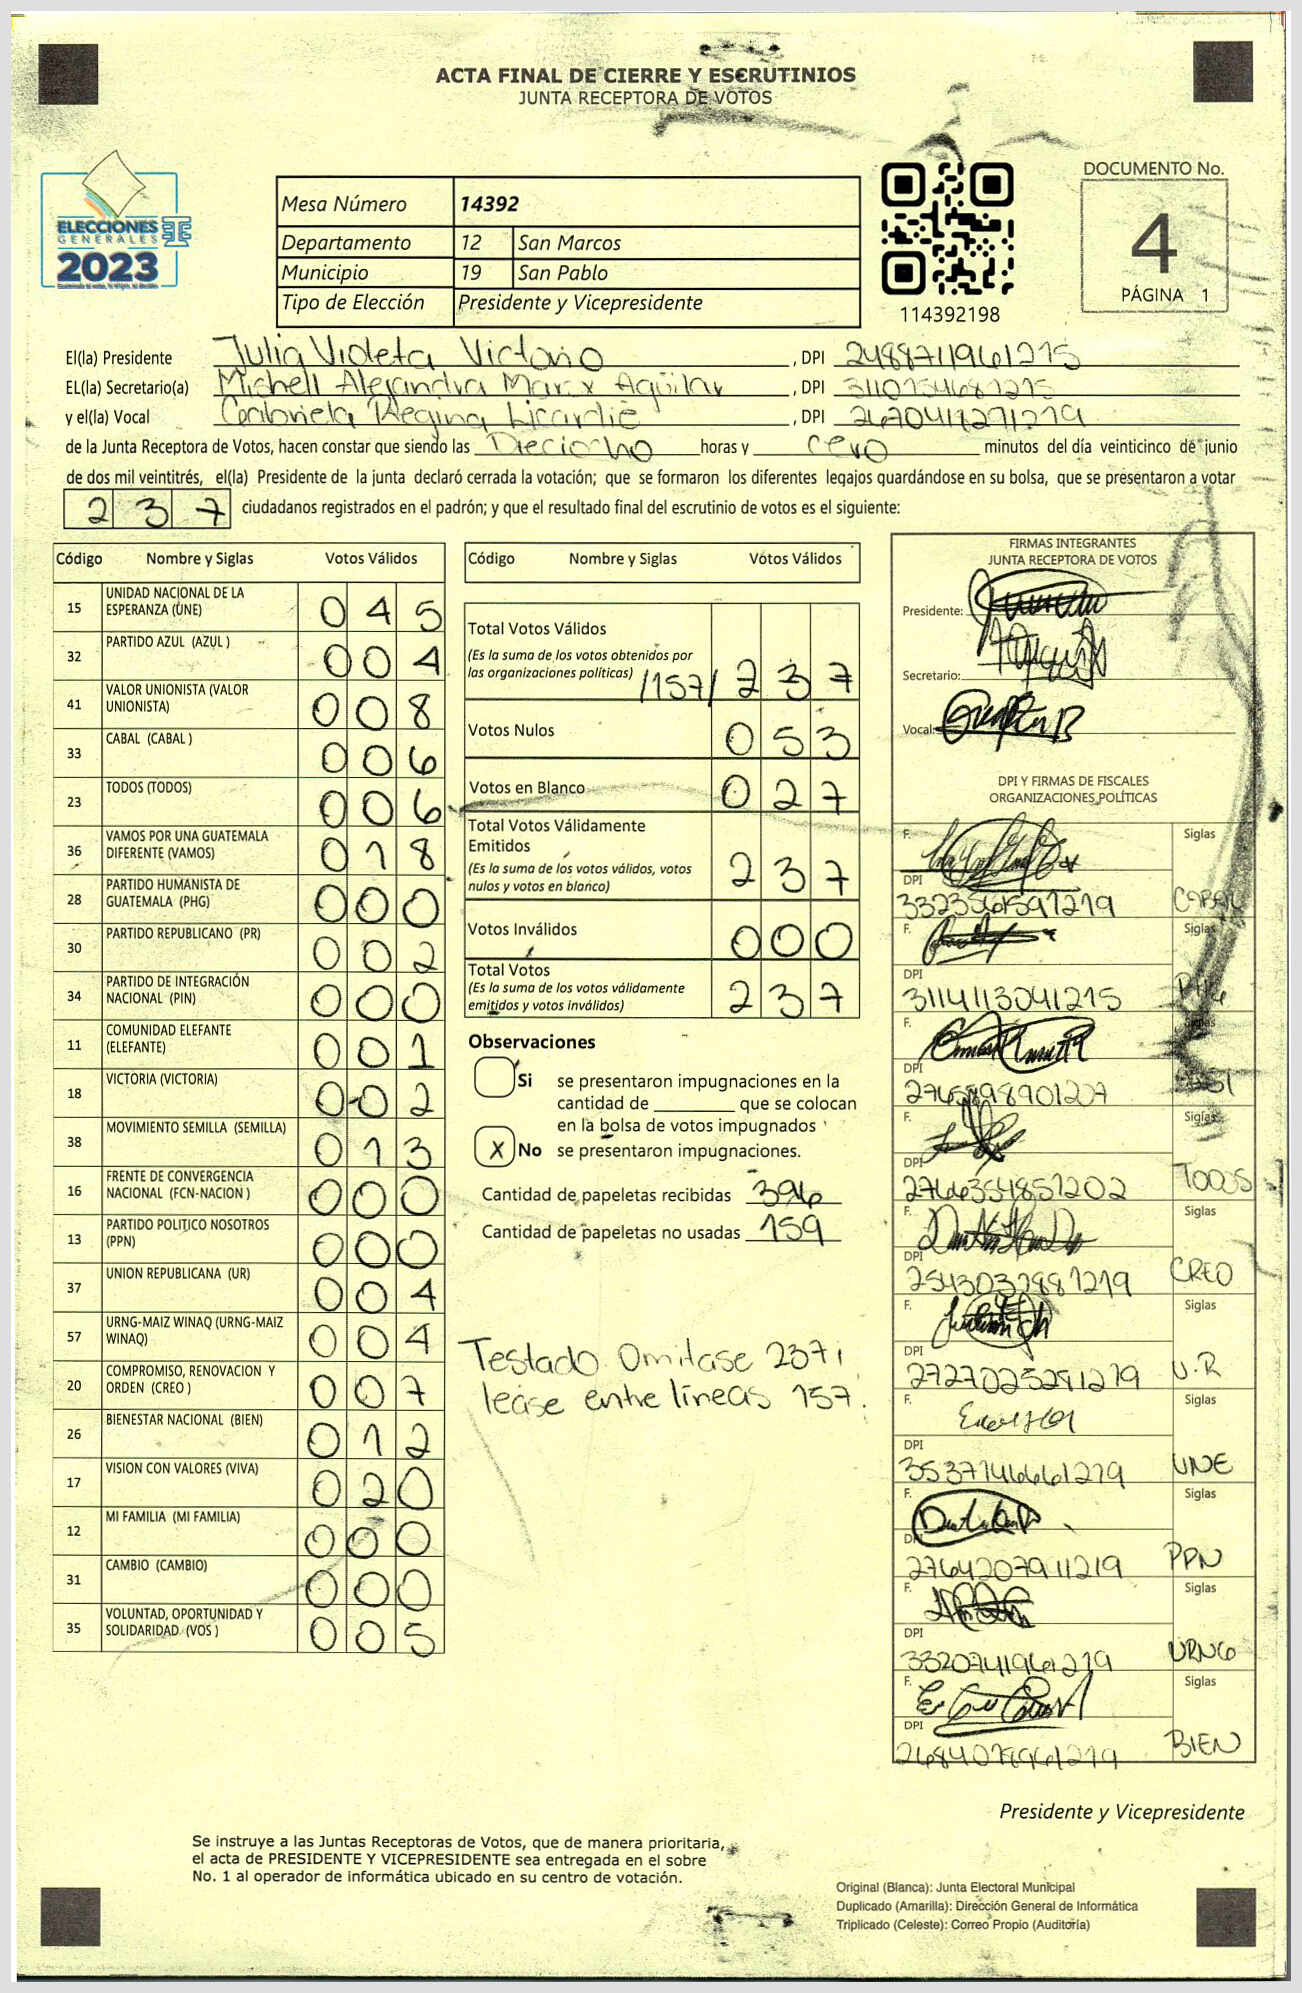 ACTA FINAL DE CIERRE Y ESCRUTINIOS
JUNTA RECEPTORA DE VOTOS
ELECCIONES
GENERALES
2023
Mesa Número 14392
Departamento 12 San Marcos
Municipio 19 San Pablo
Tipo de Elección Presidente y Vicepresidente
114392198
DOCUMENTO No.
4
PÁGINA 1
El(la) Presidente Julia Violeta Victorio , DPI 2488711961215
EL(la) Secretario(a) Mishell Alejandra Aguilar , DPI
y el(la) Vocal Gabriela Regina Licardie , DPI
de la Junta Receptora de Votos, hacen constar que siendo las Dieciocho horas y cero minutos del día veinticinco de junio
de dos mil veintitrés, el(la) Presidente de la junta declaró cerrada la votación; que se formaron los diferentes legajos guardándose en su bolsa, que se presentaron a votar
237 ciudadanos registrados en el padrón; y que el resultado final del escrutinio de votos es el siguiente:
Código Nombre y Siglas Votos Válidos
15 UNIDAD NACIONAL DE LA ESPERANZA (UNE) 045
32 PARTIDO AZUL (AZUL ) 004
41 VALOR UNIONISTA (VALOR UNIONISTA) 008
33 CABAL (CABAL ) 006
23 TODOS (TODOS) 006
36 VAMOS POR UNA GUATEMALA DIFERENTE (VAMOS) 018
28 PARTIDO HUMANISTA DE GUATEMALA (PHG) 000
30 PARTIDO REPUBLICANO (PR) 002
34 PARTIDO DE INTEGRACIÓN NACIONAL (PIN) 000
11 COMUNIDAD ELEFANTE (ELEFANTE) 001
18 VICTORIA (VICTORIA) 002
38 MOVIMIENTO SEMILLA (SEMILLA) 013
16 FRENTE DE CONVERGENCIA NACIONAL (FCN-NACION ) 000
13 PARTIDO POLITICO NOSOTROS (PPN) 000
37 UNION REPUBLICANA (UR) 004
57 URNG-MAIZ WINAQ (URNG-MAIZ WINAQ) 004
20 COMPROMISO, RENOVACION Y ORDEN (CREO ) 007
26 BIENESTAR NACIONAL (BIEN) 012
17 VISION CON VALORES (VIVA) 020
12 MI FAMILIA (MI FAMILIA) 000
31 CAMBIO (CAMBIO) 000
35 VOLUNTAD, OPORTUNIDAD Y SOLIDARIDAD (VOS ) 005
Código Nombre y Siglas Votos Válidos
Total Votos Válidos
(Es la suma de los votos obtenidos por
las organizaciones políticas) /157/ 237
Votos Nulos 053
Votos en Blanco 027
Total Votos Válidamente
Emitidos
(Es la suma de los votos válidos, votos
nulos y votos en blanco) 237
Votos Inválidos 000
Total Votos
(Es la suma de los votos válidamente
emitidos y votos inválidos) 237
Observaciones
Si se presentaron impugnaciones en la
cantidad de ________ que se colocan
en la bolsa de votos impugnados
X No se presentaron impugnaciones.
Cantidad de papeletas recibidas 396
Cantidad de papeletas no usadas 159
Testado Omitase 237;
lease entre líneas 157.
FIRMAS INTEGRANTES
JUNTA RECEPTORA DE VOTOS
Presidente:
Secretario:
Vocal:
DPI Y FIRMAS DE FISCALES
ORGANIZACIONES POLÍTICAS
F. Siglas
DPI
3323561591219 CABAL
F. Siglas
DPI
3114113041215 PHG
F. Siglas
DPI
2765898901207
F. Siglas
DPI
2766354851202 TODOS
F. Siglas
DPI
2543032881219 CREO
F. Siglas
DPI
2727025281219 U.R
F. Siglas
DPI
3537146661219 UNE
F. Siglas
DPI
2764207911219 PPN
F. Siglas
DPI
3320741961219 URNG
F. Siglas
DPI
2684078961219 BIEN
Presidente y Vicepresidente
Se instruye a las Juntas Receptoras de Votos, que de manera prioritaria,
el acta de PRESIDENTE Y VICEPRESIDENTE sea entregada en el sobre
No. 1 al operador de informática ubicado en su centro de votación.
Original (Blanca): Junta Electoral Municipal
Duplicado (Amarilla): Dirección General de Informática
Triplicado (Celeste): Correo Propio (Auditoría)